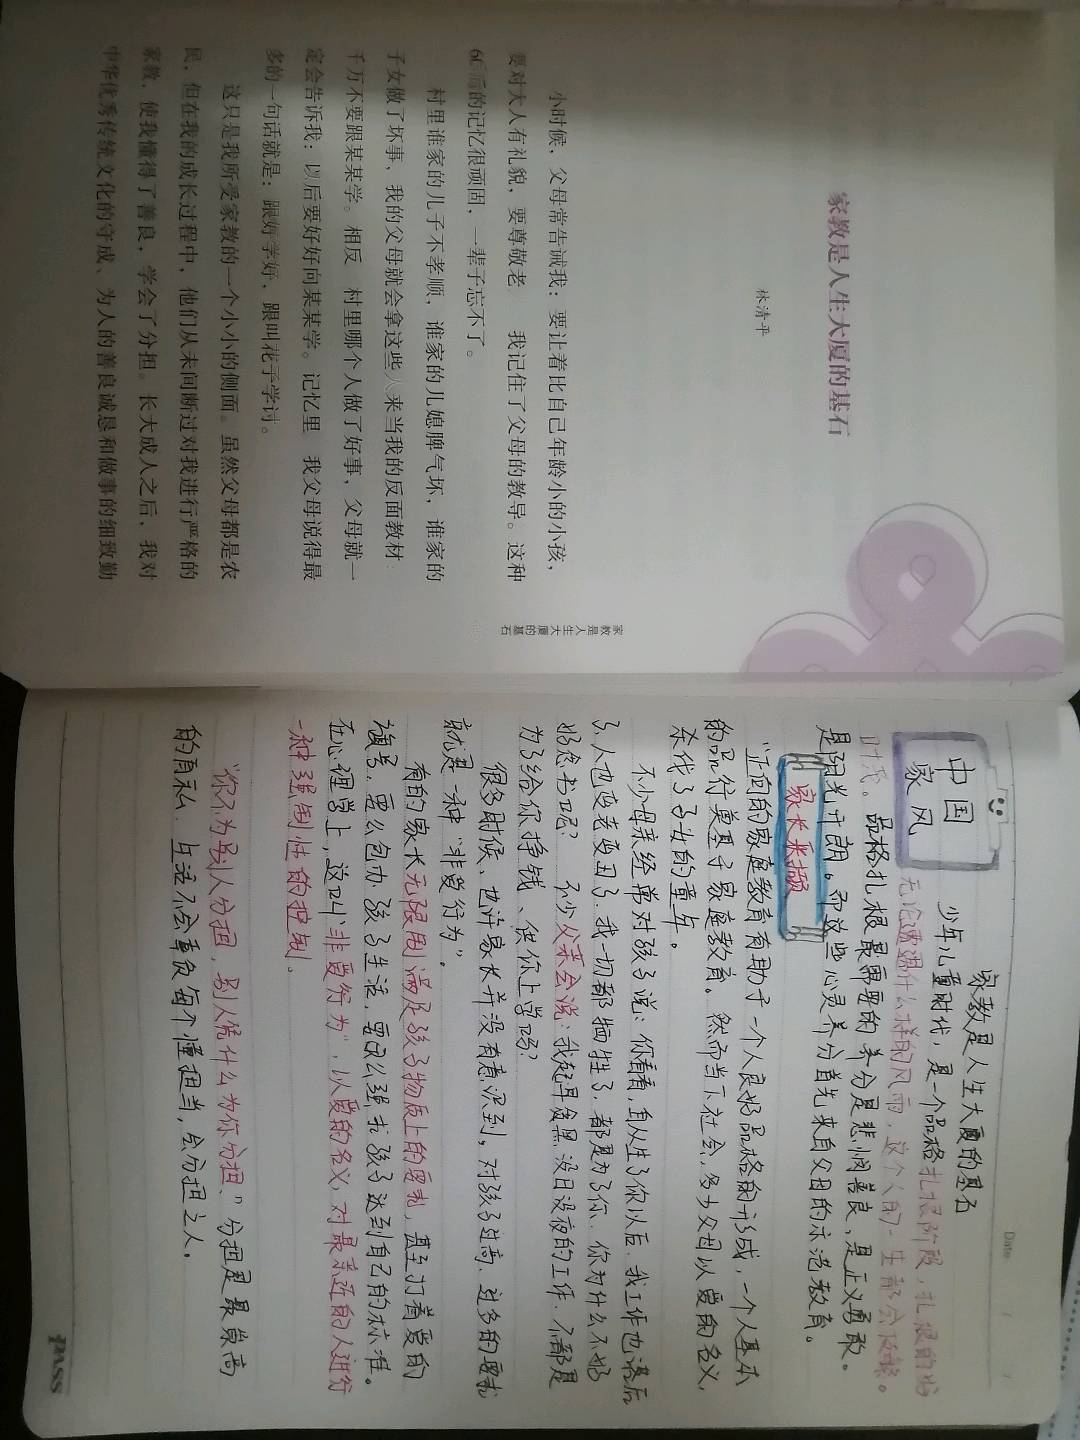 家教是人生大厦的基石
林清平
小时候，父母常告诫我：要让着比自己年龄小的小孩，
要对大人有礼貌，要尊敬老 我记住了父母的教导。这种
60后的记忆很顽固，一辈子忘不了。
村里谁家的儿子不孝顺，谁家的儿媳脾气坏，谁家的
子女做了坏事，我的父母就会拿这些人来当我的反面教材：
千万不要跟某某学。相反 村里哪个人做了好事，父母就一
定会告诉我：以后要好好向某某学。记忆里 我父母说得最
多的一句话就是：跟好学好，跟叫花子学讨。
这只是我所受家教的一个小小的侧面。虽然父母都是农
民，但在我的成长过程中，他们从未间断过对我进行严格的
家教，使我懂得了善良，学会了分担。长大成人之后，我对
中华优秀传统文化的守成、为人的善良诚恳和做事的细致勤
家教是人生大厦的基石
Date
中国
家风
家教是人生大厦的基石
少年儿童时代，是一个品格扎根阶段，扎根的好
无论遭遇什么样的风雨，这个人的一生都会
时茂。品格扎根最需要的养分是悲悯善良，是正义勇敢。
是阳光开朗。而这些心灵养分首先来自父母的示范教育。
家长采撷
“正向的家庭教育有助于一个人良好品格的形成，一个人基本
的品行奠基于家庭教育。然而当下社会，多少父母以爱的名义，
杀伐了子女的童年。
不少母亲经常对孩子说：你看看，自从生了你以后，我工作也落后
了，人也变老变丑了，我一切都牺牲了，都是为了你，你为什么不好
好念书呢？ 不少父亲会说：我起早贪黑，没日没夜的工作，不都是
为了给你挣钱、供你上学吗？
很多时候、也许家长并没有意识到，对孩子过高、过多的要求
就是一种“非爱行为”。
有的家长无限困满足孩子物质上的要求，甚至打着爱的
旗号，要么包办孩子生活，要么强求孩子达到自己的标准。
在心理学上，这叫“非爱行为”，以爱的名义，对最亲近的人进行
一种强制性的控制。
“你不为别人分担，别人凭什么为你分担。”分担是最崇高
的自私．生活不会辜负每个懂担当，会分担之人。
PASS